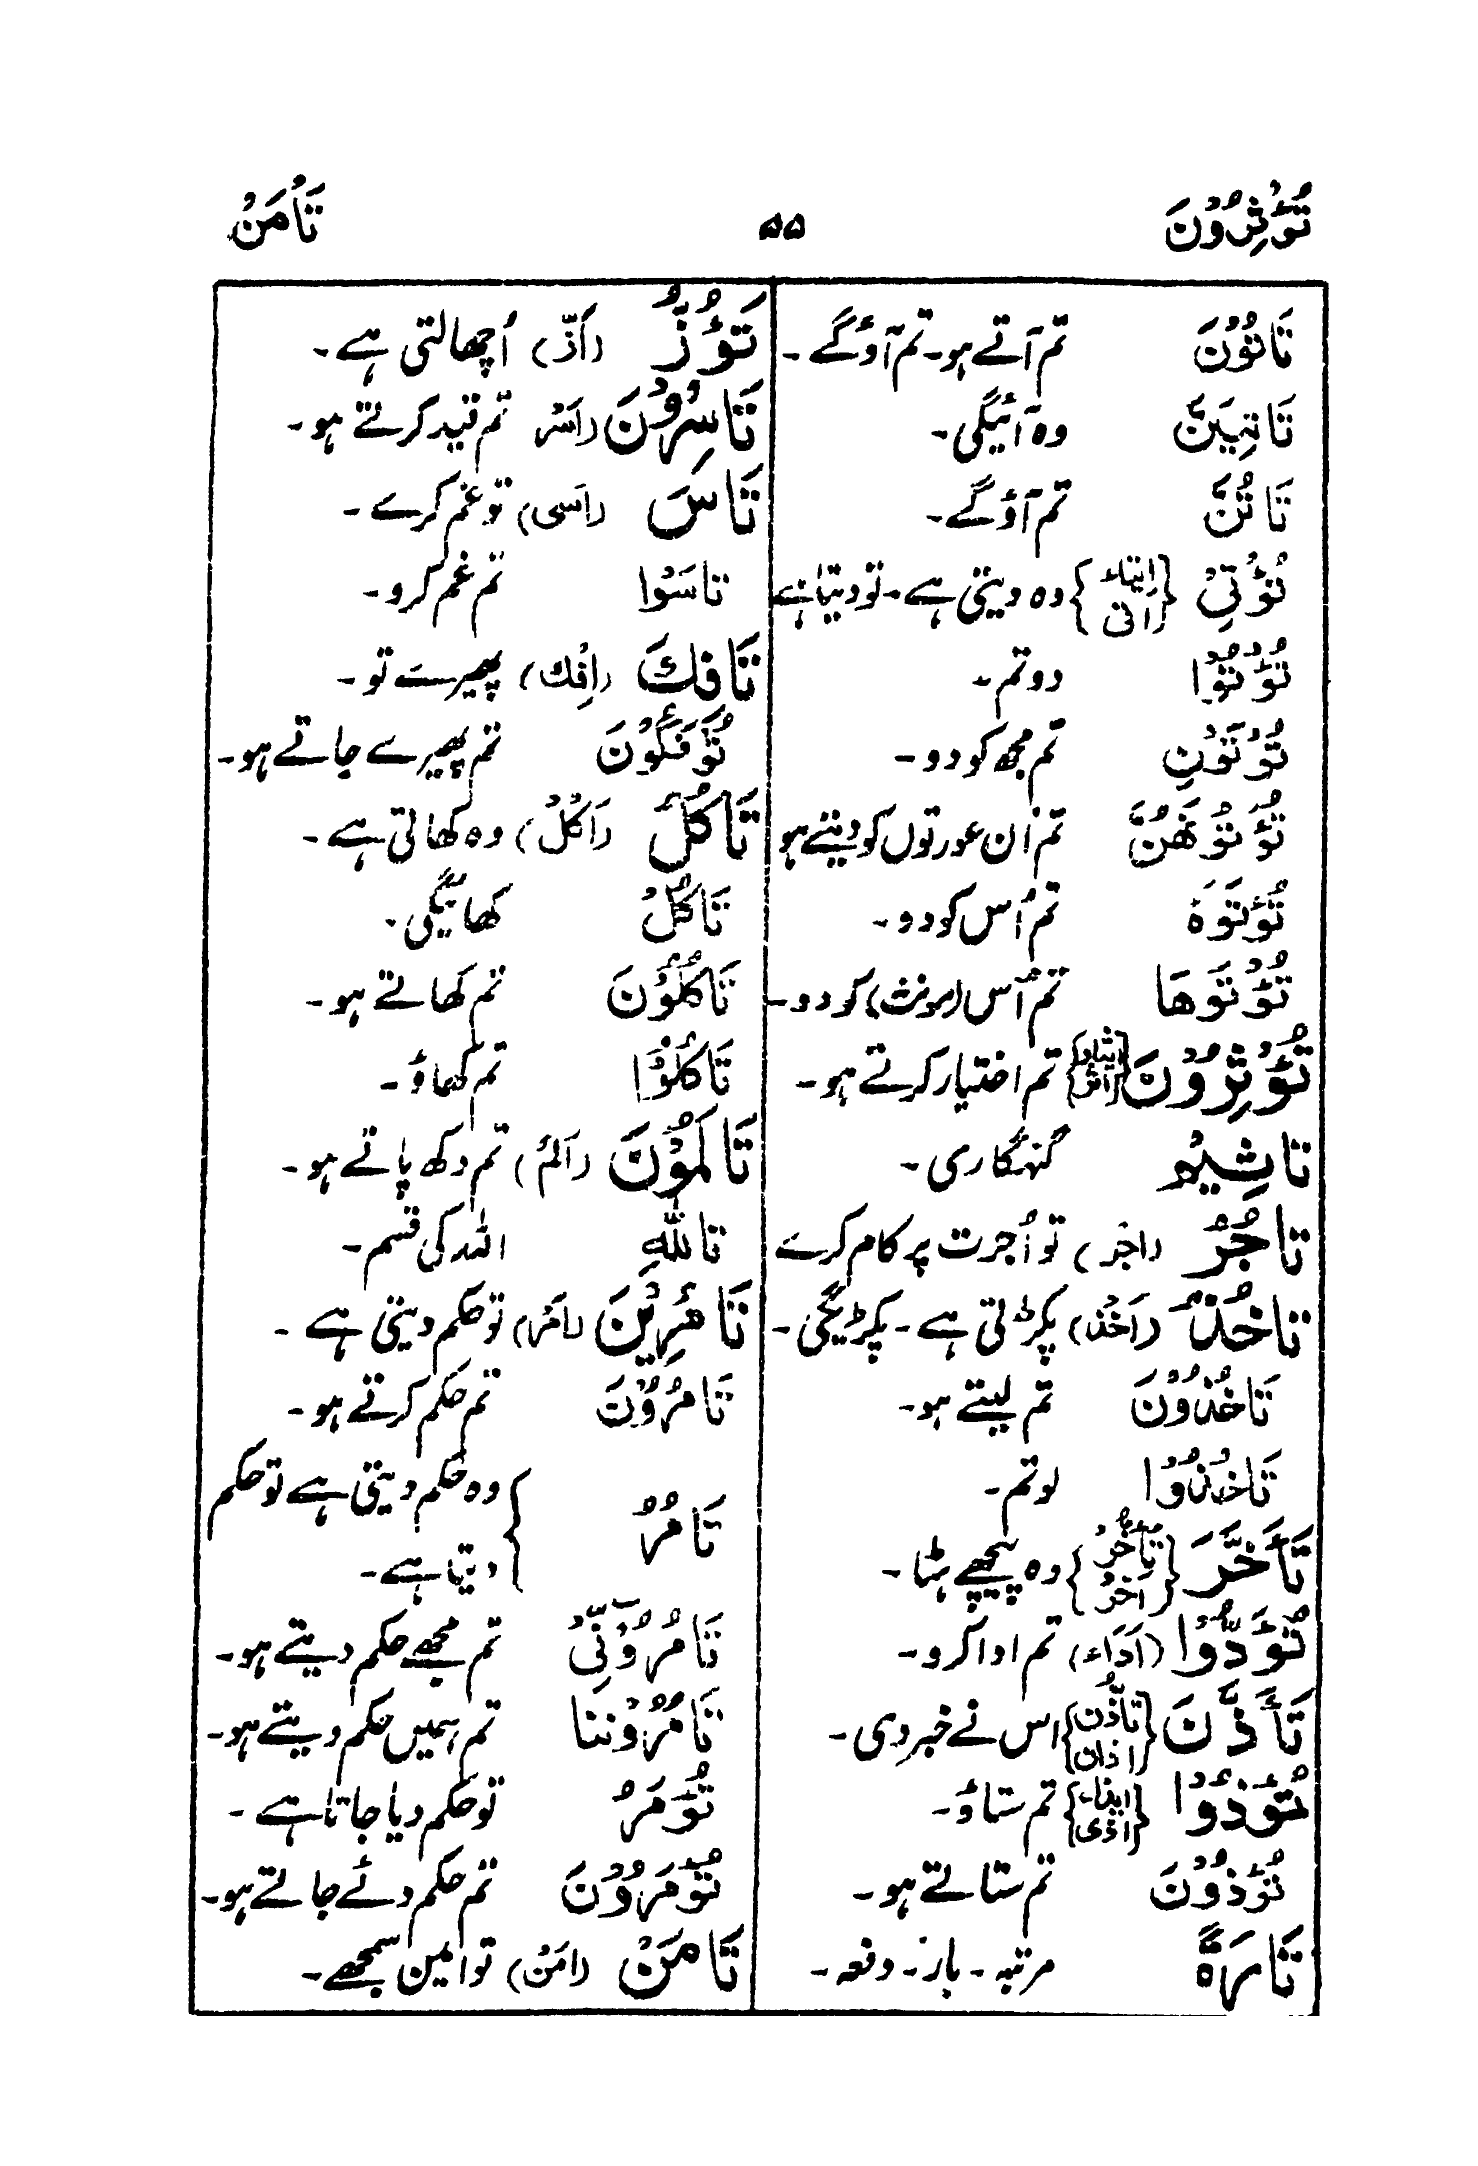 تُؤْثِرُوْنَ ۵۵ تَأْمَنْ
تَاْتُوْنَ تم آتے ہو۔ تم آؤ گے۔
تَاْتِيَنَّ وہ آئیگی۔
تَاْتُنَّ تم آؤ گے۔
تُؤْتِیْ {اِیْتَاء اتی} وہ دیتی ہے۔ تو دیتا ہے
تُؤْتُوْا دو تم۔
تُؤْتُوْنِ تم مجھ کو دو۔
تُؤْتُوْنَهُنَّ تم ان عورتوں کو دیتے ہو
تُؤْتَوْهُ تم اُس کو دو۔
تُؤْتَوْهَا تم اُس (مونث) کو دو۔
تُؤْثِرُوْنَ {ایثار اثر} تم اختیار کرتے ہو۔
تَاْثِیْم گنہگاری۔
تَاْجُرُ (اجر) تو اُجرت پر کام کرے
تَاْخُذُ (اَخْذ) پکڑتی ہے۔ پکڑیگی۔
تَاْخُذُوْنَ تم لیتے ہو۔
تَاْخُذُوْا لو تم۔
تَأَخَّرَ {تَأَخُّرُ اخر} وہ پیچھے ہٹا۔
تُؤَدُّوْا (اَدَاء) تم ادا کرو۔
تَأَذَّنَ {تَأَذُّن اذان} اس نے خبر دی۔
تُؤْذُوْا {ایذاء اذی} تم ستاؤ۔
تُؤْذُوْنَ تم ستاتے ہو۔
تَارَةً مرتبہ۔ بار۔ دفعہ۔
تَؤُزُّ (اَزّ) اُچھالتی ہے۔
تَاْسِرُوْنَ (اَسْر) تم قید کرتے ہو۔
تَاْسَ (اَسٰی) تو غم کرے۔
تَاْسَوْا تم غم کرو۔
تَاْفِكَ (اِفْك) پھیرے تو۔
تُؤْفَكُوْنَ تم پھیرے جاتے ہو۔
تَاْكُلُ (اَكْلُ) وہ کھاتی ہے۔
تَاْكُلُ کھائیگی۔
تَاْكُلُوْنَ تم کھاتے ہو۔
تَاْكُلُوْا تم کھاؤ۔
تَاْلَمُوْنَ (اَلَمُ) تم دکھ پاتے ہو۔
تَاللّٰهِ اللہ کی قسم۔
تَاْمُرِيْنَ (اَمْر) تو حکم دیتی ہے۔
تَاْمُرُوْنَ تم حکم کرتے ہو۔
تَاْمُرُ } وہ حکم دیتی ہے تو حکم
دیتا ہے۔
تَاْمُرُوْنِّیْ تم مجھے حکم دیتے ہو۔
تَاْمُرُوْنَنَا تم ہمیں حکم دیتے ہو۔
تُؤْمَرُ تو حکم دیا جاتا ہے۔
تُؤْمَرُوْنَ تم حکم دئے جاتے ہو۔
تَاْمَنْ (اَمْنْ) تو امین سمجھے۔